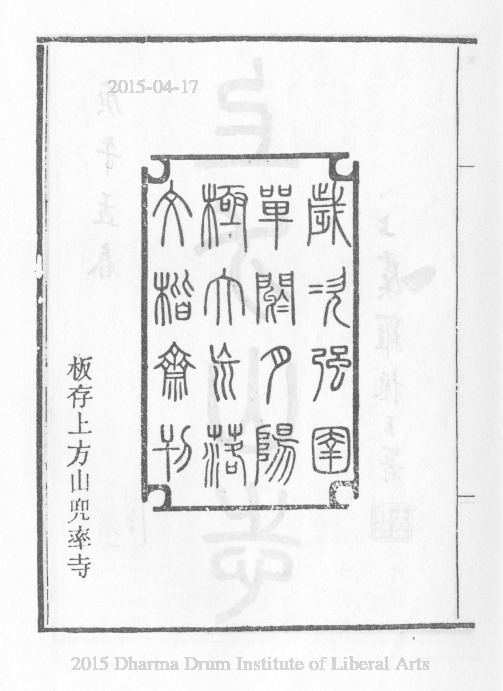 2015-04-17
歲次強圉
單閼月陽
極大巟落
文楷齋刊
板存上方山兜率寺
2015 Dharma Drum Institute of Liberal Arts